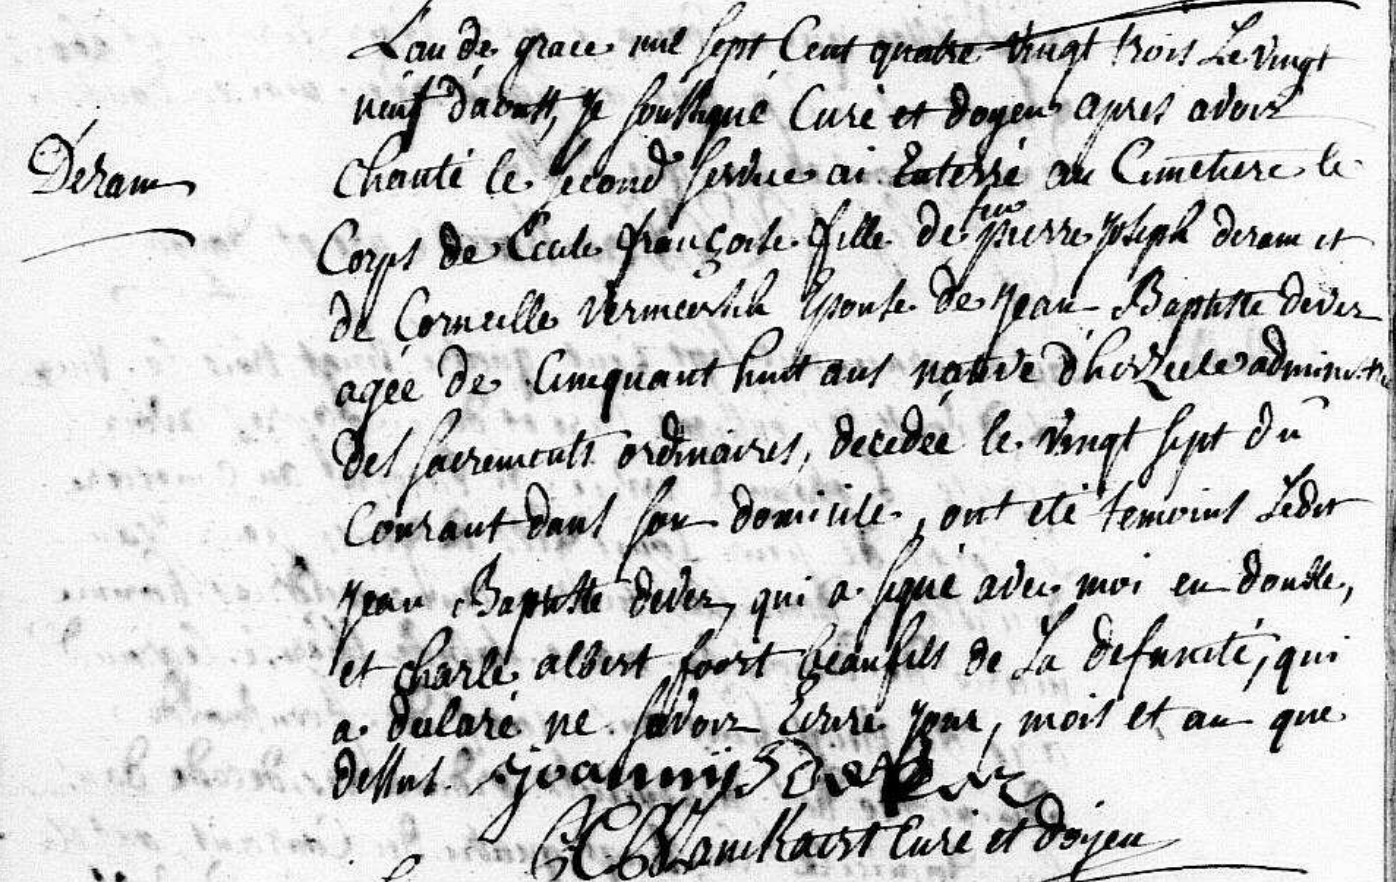 L'an de grace mil sept Cent quatre vingt trois Le vingt
neuf d'aoust, je soussigné Curé et doyen apres avoir
Déram
chanté le second service ai Enterré au Cimetiere le
Corps de Cecile françoise fille de feu pierre joseph deram et
de Corneille vermeersch Epouse de jean Baptiste dever
agée de Cinquant huit ans native d'herzeele administrée
des sacrements ordinaires, decedée le vingt sept du
Courant dans son domicile, ont eté temoins Ledit
jean Baptiste dever, qui a signé avec moi en double,
et charle albert foort beaufils de La defuncte, qui
a declaré ne savoir Ecrire jour, mois et an que
dessus. joannis
Curé et doyen